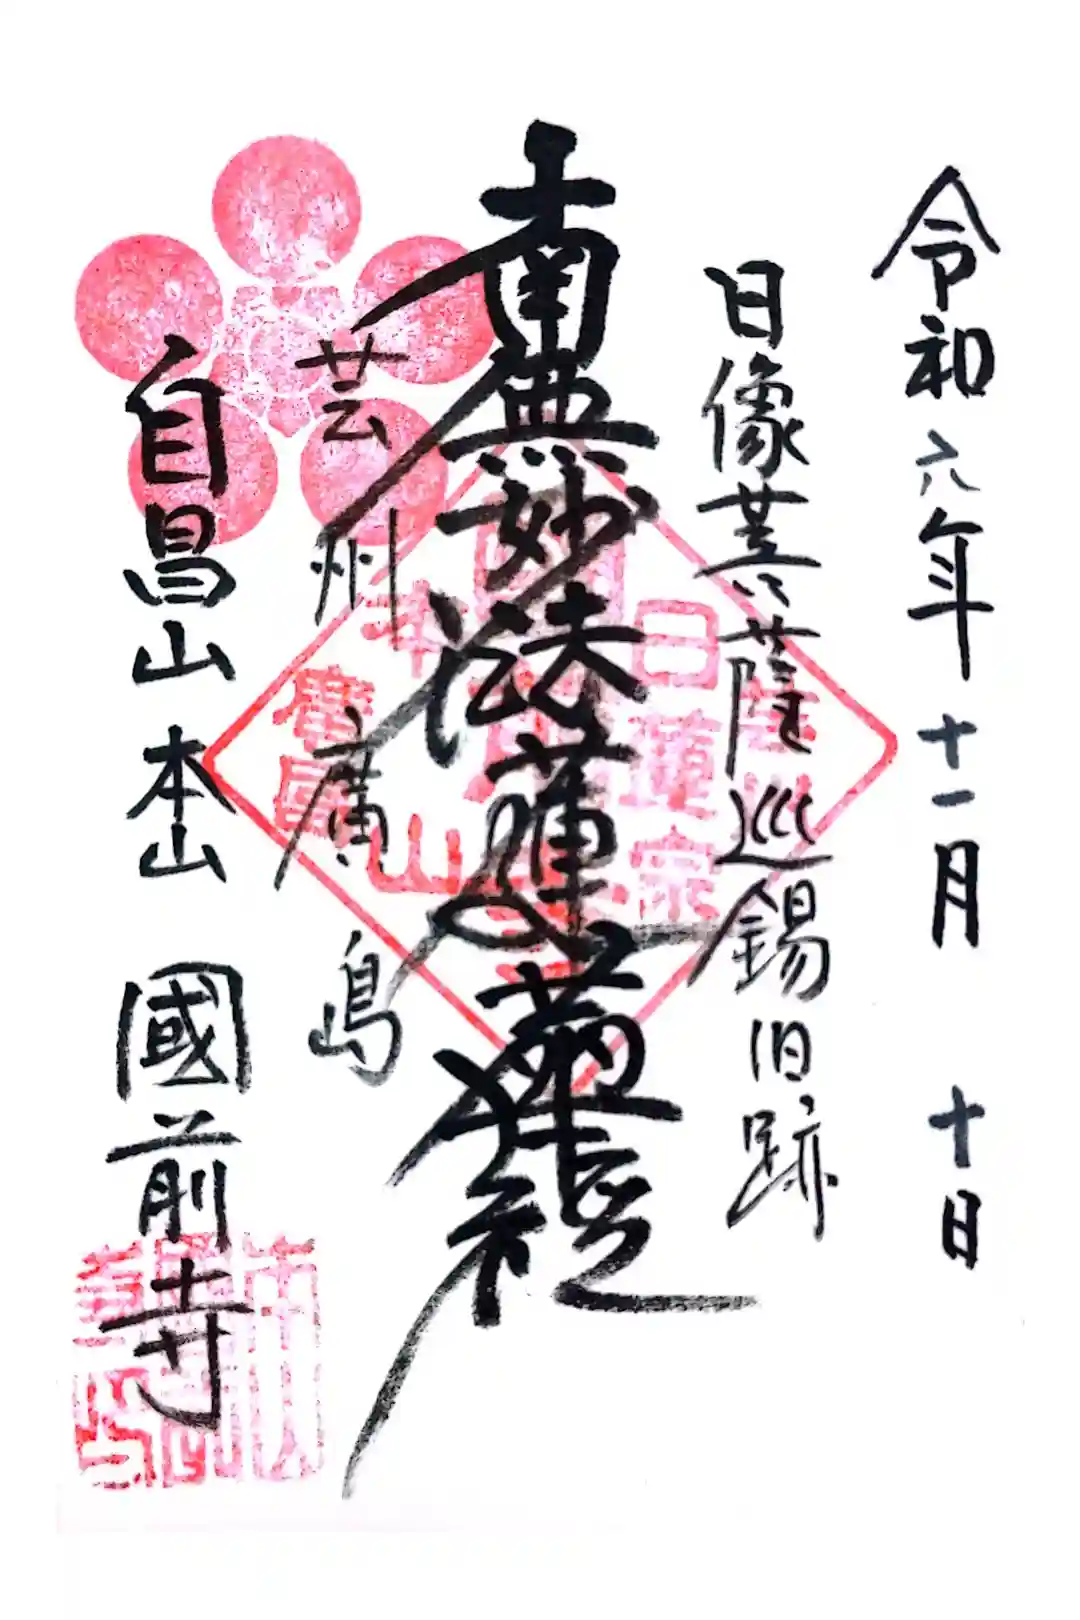 令和六年十一月十日
日像菩薩巡錫旧跡
南無妙法蓮華経
芸州廣島
自昌山本山國前寺
日蓮宗